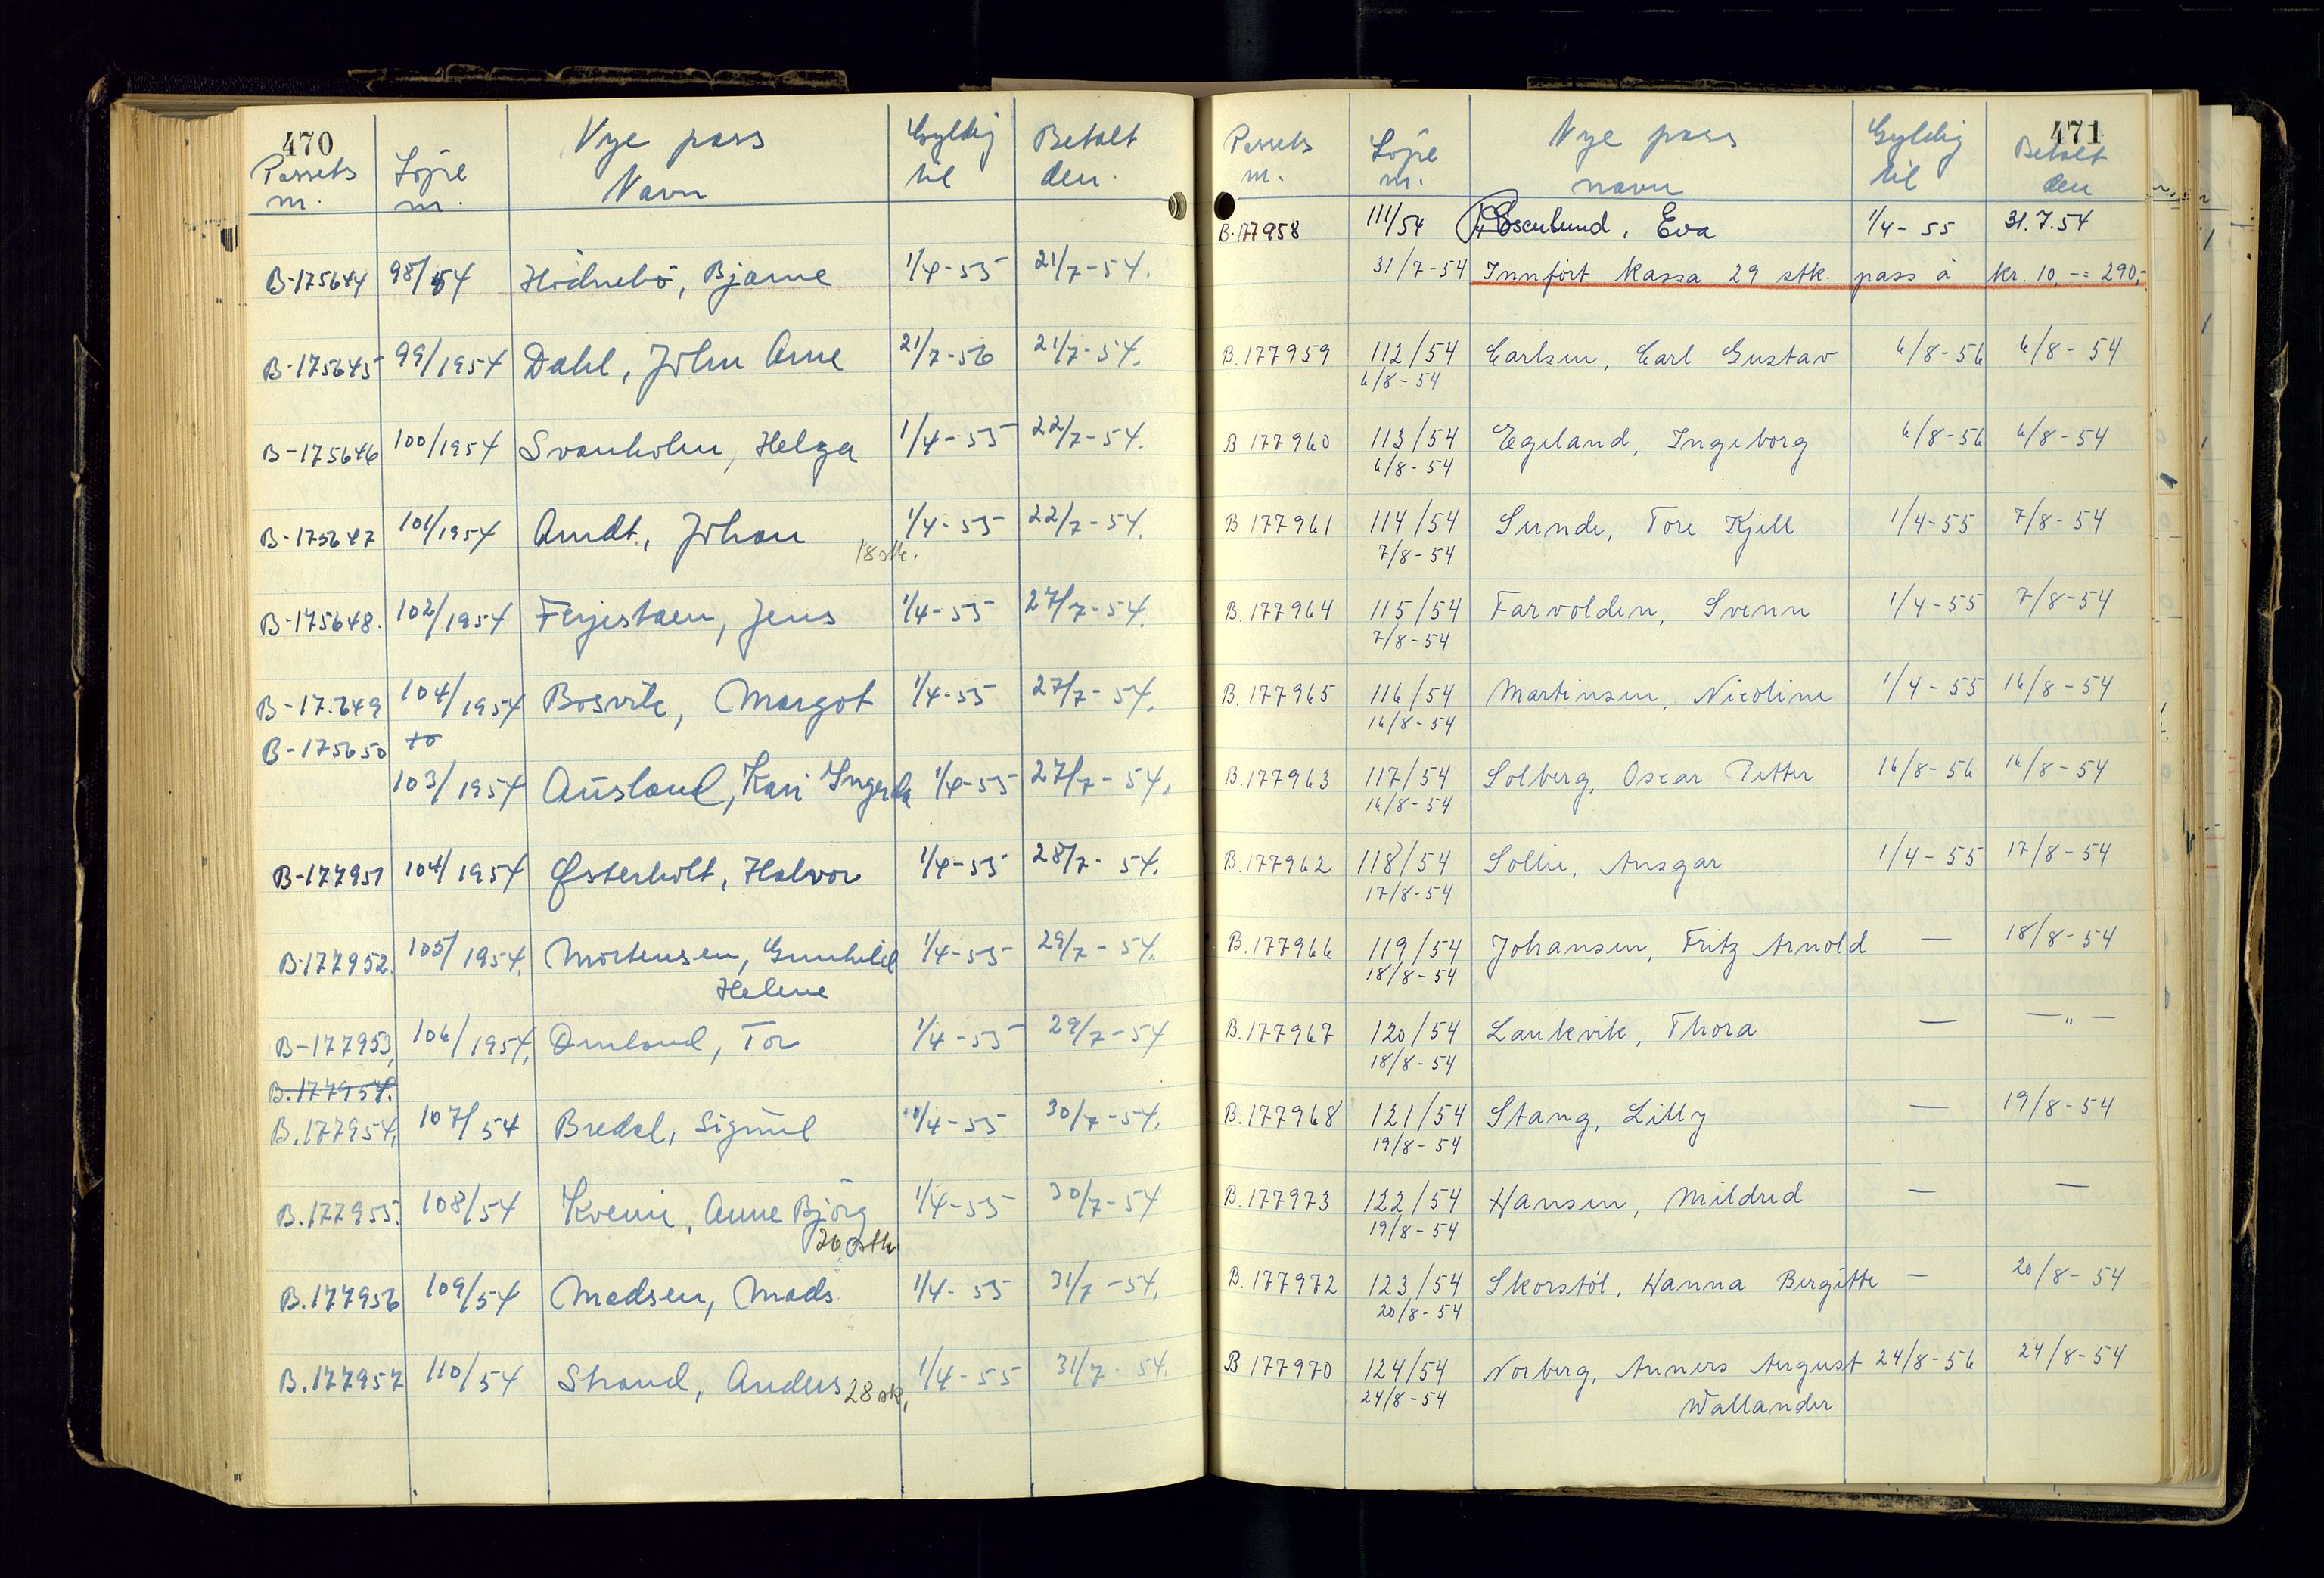 470
Passets nr. Löpe nr. Nye pass Navn Gyldig til Betalt den.
B-175644 98/54 Hödnebö, Bjarne 1/4-55 21/7-54.
B-175645 99/1954 Dahl, John Arne 21/7-56 21/7-54.
B-175646 100/1954 Svanholm, Helga 1/4-55 22/7-54.
B-175647 101/1954 Arndt, Johan 1/4-55 22/7-54.
18 stk.
B-175648. 102/1954 Jens 1/4-55 27/7-54.
B-17.649 104/1954 Bosvik, Margot 1/4-55 27/7-54.
B-175650 to
103/1954 Ausland, Kari Ingerda 1/4-55 27/7-54.
B-177951 104/1954 Østerholt, Halvor 1/4-55 28/7-54.
B-177952. 105/1954. Mortensen, Gunhild 1/4-55 29/7-54.
Helene
B-177953, 106/1954, Omland, Tor 1/4-55 29/7-54
B.177954.
B.177954, 107/54 Bredal, Sigurd 1/4-55 30/7-54.
B.177955. 108/54 Anne Björg 1/4-55 30/7-54
26 stk
B.177956 109/54 Madsen, Mads 1/4-55 31/7-54.
B.177957 110/54 Strand, Anders 28 stk. 1/4-55 31/7-54.
471
Passets nr. Löpe nr. Nye pass navn Gyldig til Betalt den
B.177958 111/54 Rosenlund, Eva 1/4-55 31.7.54
31/7-54 Innfört kassa 29 stk. pass à kr. 10,-= 290,-
B.177959 112/54 Carlsen, Carl Gustav 6/8-56 6/8-54
6/8-54
B 177960 113/54 Egeland, Ingeborg 6/8-56 6/8-54
6/8-54
B 177961 114/54 Sunde, Tore Kjell 1/4-55 7/8-54
7/8-54
B.177964 115/54 Farvolden, Svenn 1/4-55 7/8-54
7/8-54
B.177965 116/54 Martinsen, Nicoline 1/4-55 16/8-54
16/8-54
B.177963 117/54 Solberg, Oscar Petter 16/8-56 16/8-54
16/8-54
B.177962 118/54 Sollie, Ansgar 1/4-55 17/8-54
17/8-54
B.177966 119/54 Johansen, Fritz Arnold — 18/8-54
18/8-54
B.177967 120/54 Laukvik, Thora — —"—
18/8-54
B.177968 121/54 Stang, Lilly — 19/8-54
19/8-54
B.177973 122/54 Hansen, Mildred — —
19/8-54
B.177972 123/54 Skorstöl, Hanna Bergitte — 20/8-54
20/8-54
B 177970 124/54 Norberg, Anners August 24/8-56 24/8-54
24/8-54 Wallander